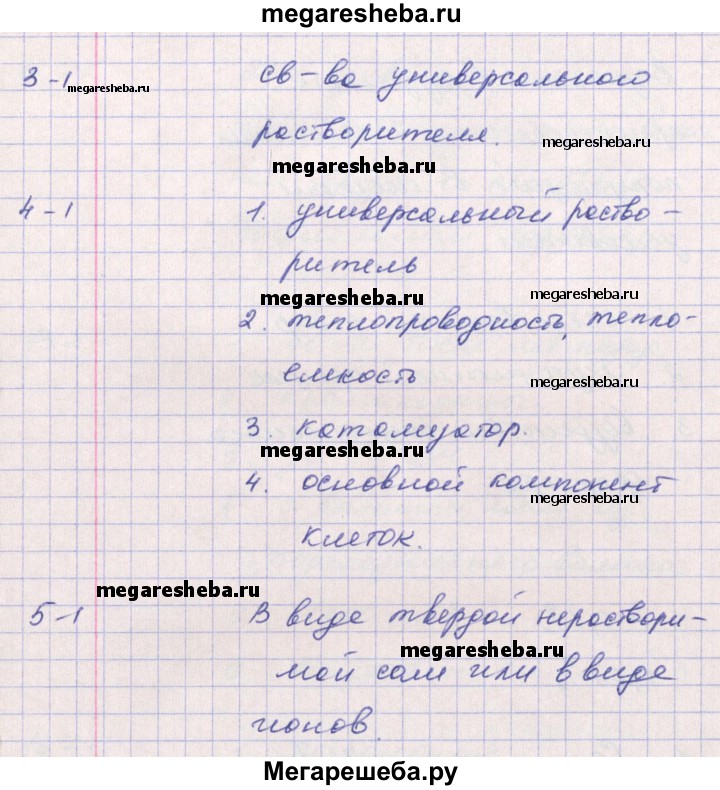 megaresheba.ru
3-1 св-ва универсального
megaresheba.ru
растворителя. megaresheba.ru
megaresheba.ru
4-1 1. универсальный раство-
ритель
megaresheba.ru megaresheba.ru
2. теплопроводность, тепло-
емкость megaresheba.ru
3. катализатор.
megaresheba.ru
4. основной компонент
megaresheba.ru
клеток.
megaresheba.ru
5-1 В виде твердой нераствори-
megaresheba.ru
мой соли или в виде
ионов.
Мегарешеба.ру